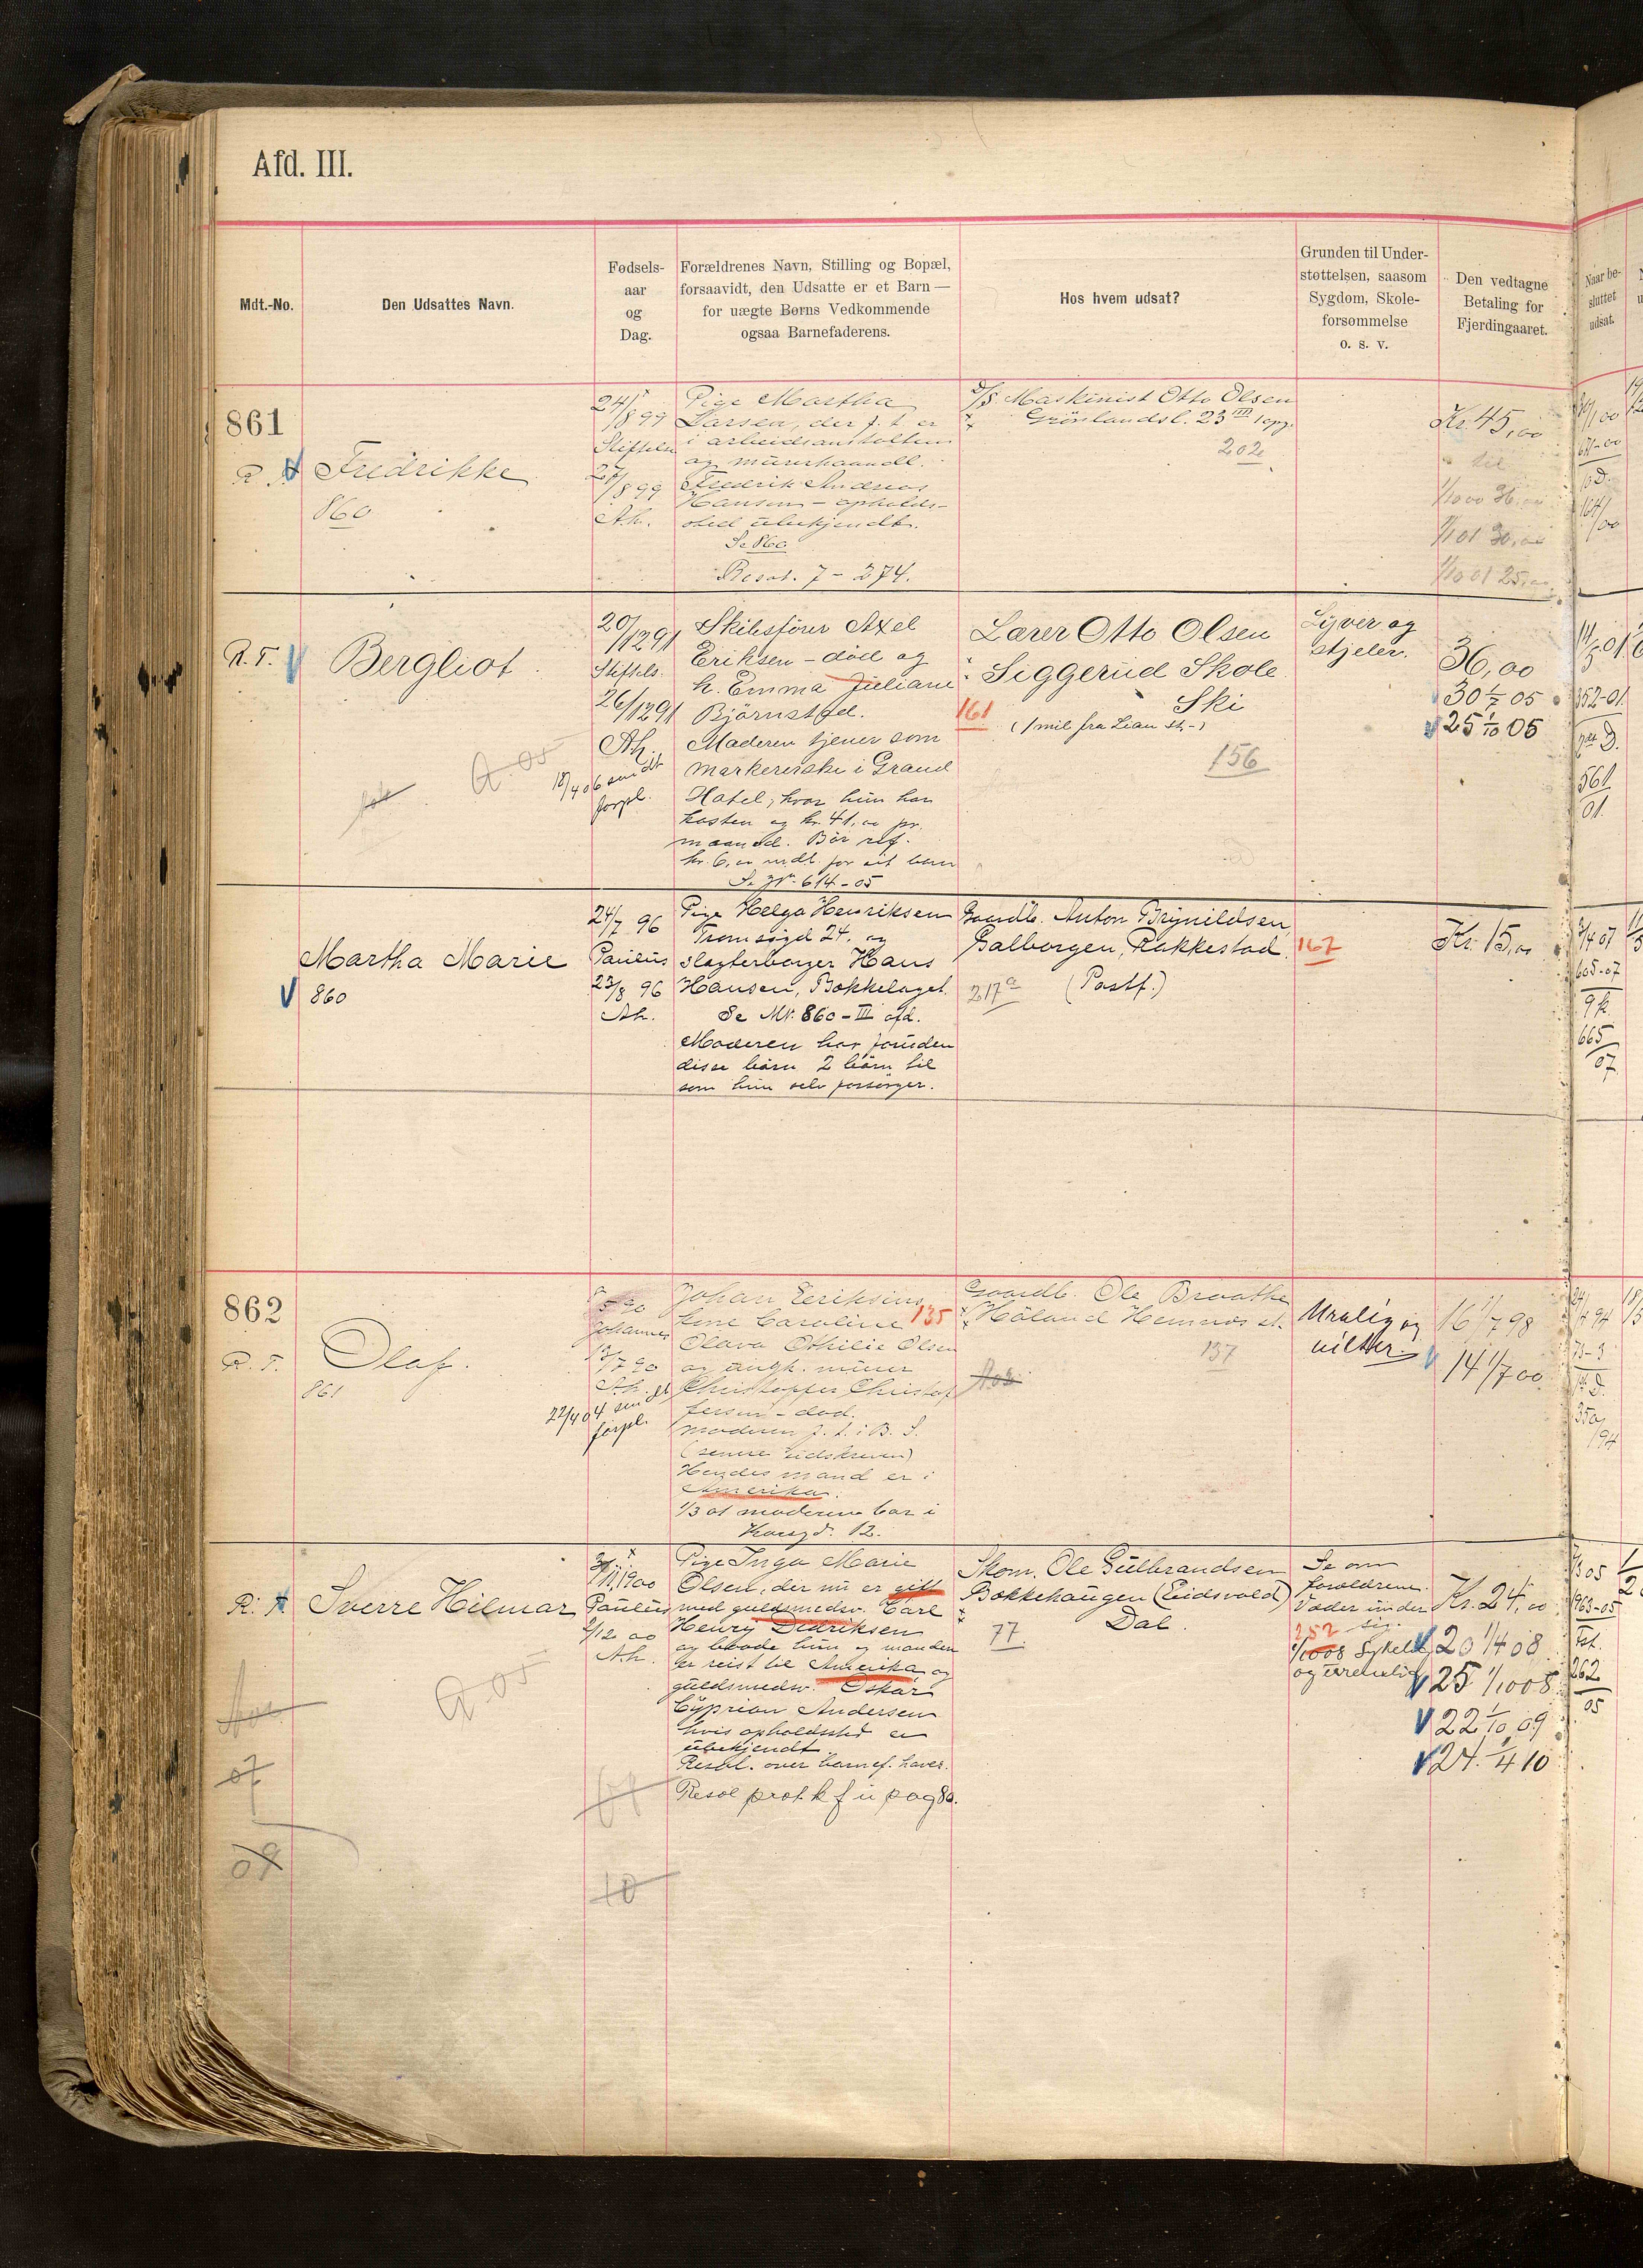 Afd. III.
Mdt.-No.
Den Udsattes Navn.
Fødsels-
aar
og
Dag.
Forældrenes Navn, Stilling og Bopæl,
forsaavidt, den Udsatte er et Barn —
for uægte Børns Vedkommende
ogsaa Barnefaderens.
Hos hvem udsat?
Grunden til Under-
støttelsen, saasom
Sygdom, Skole-
forsømmelse
o. s. v.
Den vedtagne
Betaling for
Fjerdingaaret.
Naar be-
sluttet
udsat.
861
Fredrikke
860
24/8 99
Stiftelsen
27/8 99
Ah.
Pige Martha
Larsen, der f. t. er
i arbeidsanstalten
og murerhaandl.
Fredrik Andreas
Hansen - opholds-
sted ubekjendt.
Se 860
Resol. 7 - 274.
Maskinist Otto Olsen
Grönlandsl. 23 III opg.
202
Kr. 45,00
til
1/10 00 36,00
1/1 01 30,00
1/10 01 25,00
R. T.
Bergliot
20/12 91
Stiftels.
26/12 91
Ah.
18/4 06 sendt
forpl.
Skibsfører Axel
Eriksen - død og
h. Emma Juliane
Björnstad.
Moderen tjener som
markererske i Grand
Hotel, hvor hun har
kosten og kr. 41,00 pr.
maaned. Bör ref.
kr. 6,00 mdl. for sit barn
Se No. 614 - 05
Lærer Otto Olsen
Siggerud Skole
Ski
161
(1 mil fra Lian st.)
156
Lyver og
stjeler.
36,00
30 1/7 05
25 1/10 05
352-01.
561
01.
Martha Marie
860
24/7 96
Paulus
23/8 96
Ah.
Pige Helga Henriksen
Tromsögd 24. og
slagterborger Hans
Hansen, Bakkelaget.
Se Nr. 860 - III afd.
Moderen har foruden
disse barn 2 børn til
som hun selv forsörger.
Gaardb. Anton Brynildsen,
Galborgen, Rakkestad.
217a
(Postf.)
167
Kr. 15,00
2/4 07
605-07
9k.
665
07
862
R. T.
Olaf.
861
5 90
Johannes
13/7 90
Ah.
22/4 04 sendt
forpl.
Johan Eeriksins
Lene Caroline
135
Olava Othilie Olsen
og angh. murer
Christoffer Christof
fersen - död.
moderen f. t. i B. S.
Hendes mand er i
Amerika.
1/3 01 moderen bor i
Gaardb. Ole Braathe
Höland Hemnæs st.
137
Uralig og
vilter.
16 1/7 98
14 1/7 00
R. T.
Sverre Hilmar
11/1900
Paulus
2/12 00
Ah.
Pige Inga Marie
Olsen, der nu er gift
med guldsmedsv. Carl
Henry Didriksen
og baade hun og manden
er reist til Amerika og
guldsmedsv. Oskar
Cyprian Andersen
hvis opholdssted er
ubekjendt.
Resol. over barnef. haves.
Resol prot. k f u pag 80.
Skom. Ole Gulbrandsen
Bakkehaugen (Eidsvold)
Dal.
77.
Se om
forældrene.
Væder under
sig.
252
og urenslig
Kr. 24,00
20 1/4 08
25 1/10 08
22 1/10 09
24. 1/4 10
963-05
262
05
07
09
10